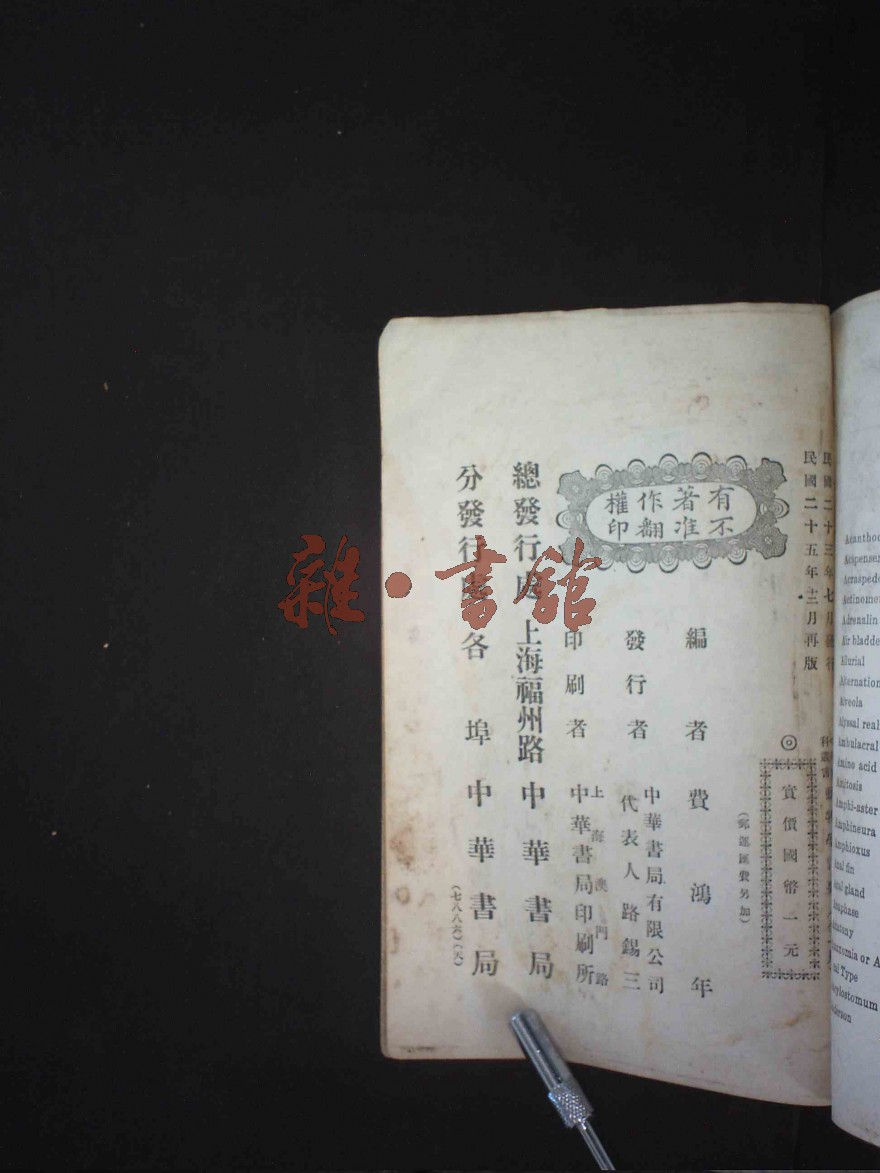 民國二十三年七月發行
民國二十五年十二月再版
◎
實價國幣一元
(郵運匯費另加)
有著作權
不准翻印
編者 費鴻年
發行者 中華書局有限公司
代表人 路錫三
印刷者 上海澳門路
中華書局印刷所
總發行處 上海福州路 中華書局
分發行處 各埠 中華書局
(七八八六)
雜·書舘
Acipenser
Adrenalin
Air bladde
Alternation
Alveola
Abyssal real
Ambulacral
Amino acid
Amitosis
Amphi-aster
Amphineura
Amphioxus
Anal fin
Anal gland
Anaphase
Anatomy
Anconomia or A